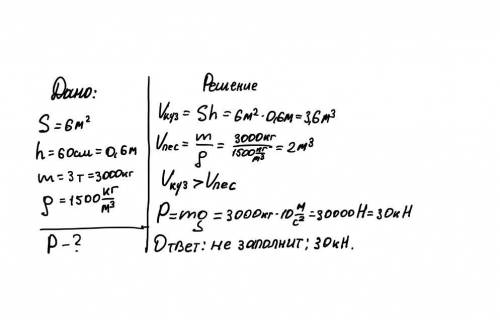 Дано:
S = 6 м²
h = 60см = 0,6м
m = 3 т = 3000кг
ρ = 1500 кг/м³
P - ?
Решение
Vкуз = Sh = 6м² · 0,6м = 3,6м³
Vпес = m/ρ = 3000кг / 1500 кг/м³ = 2м³
Vкуз > Vпес
P = mg = 3000кг · 10 м/с² = 30000 Н = 30кН
Ответ: не заполнит; 30кН.